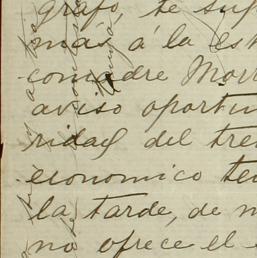 grafo, te sup
más á la est
comadre Mor
aviso oportun
ridad del tre
economico te
la tarde, de m
no ofrece el